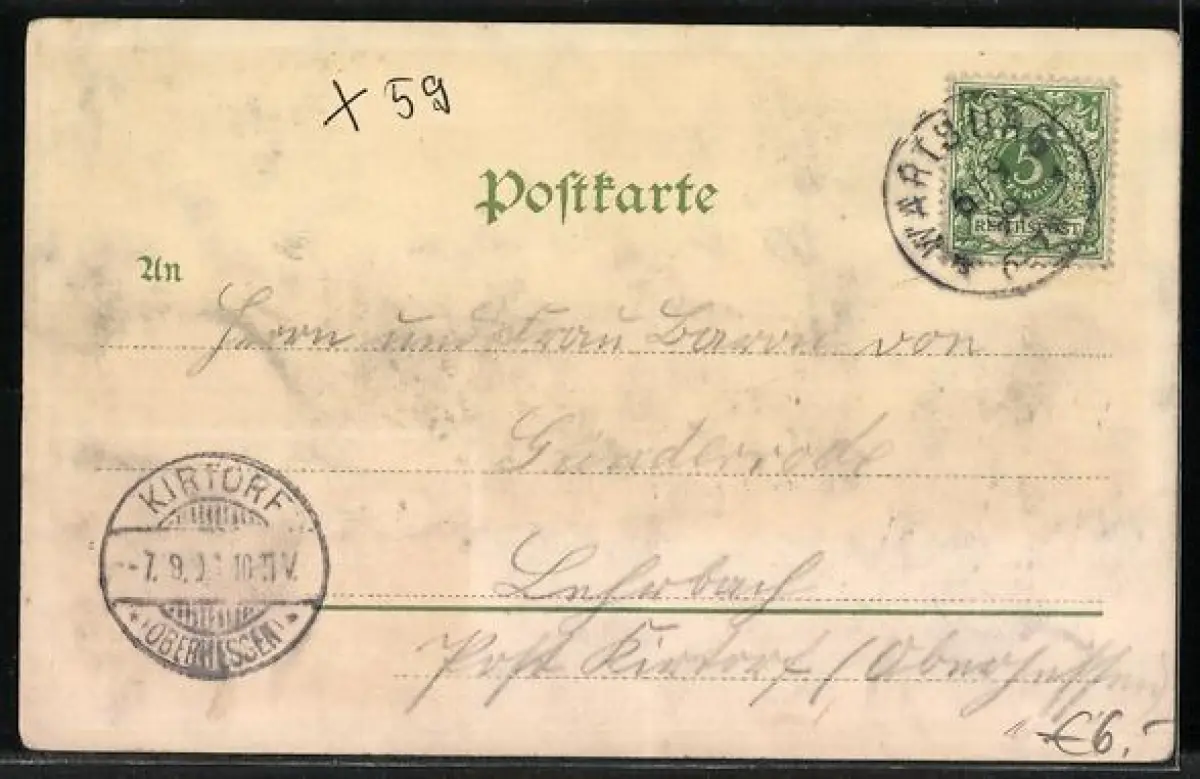 x 59
Postkarte
WARTBURG
5
REICHSPOST
An
Herrn und Frau Baron von
Günderrode
Lehrbach
Post Kirtorf (Oberhessen)
KIRTORF
10-11 V.
(OBERHESSEN)
6,-